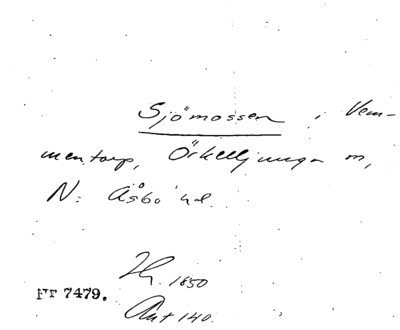 Sjömossen i Vem-
mentorp, Örkelljunga m,
N: Åsbo hd.
1850
Fr 7479.
Ant 140.